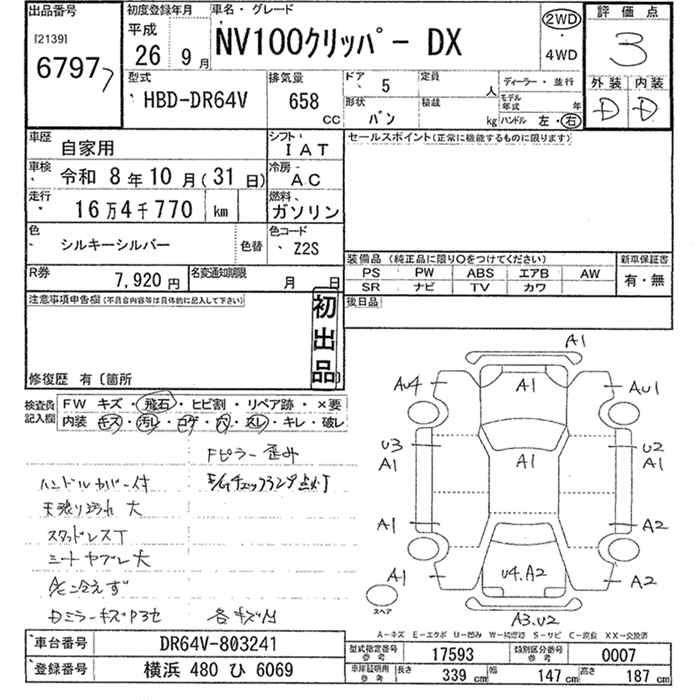 出品番号
[2139]
6797
初度登録年月
平成
26 9月
車名・グレード
NV100クリッパー DX
2WD
・
4WD
評価点
3
外装 内装
D D
型式
HBD-DR64V
排気量
658 CC
ドア
5
定員
人
ディーラー・並行
形状
バン
積載
kg
モデル年式 年
ハンドル 左・右
車歴
自家用
シフト
IAT
車検
令和 8年10月(31日)
冷房
AC
走行
16万4千770 km
燃料
ガソリン
色
シルキーシルバー
色替
色コード
Z2S
R券
7,920円
名変通知期限
月 日
セールスポイント(正常に機能するものに限ります)
装備品 (純正品に限り○をつけてください)
PS PW ABS エアB AW
SR ナビ TV カワ
新車保証書
有・無
後日品
注意事項申告欄(不具合内容等は具体的に記入して下さい)
初出品
修復歴 有〔箇所 〕
検査員記入欄
FW キズ・飛石・ヒビ割・リペア跡・×要
内装 キズ・汚レ・コゲ・穴・スレ・キレ・破レ
Fピラー歪み
ハンドルカバー付
E/Gチェックランプ点灯
天張り汚れ大
スタッドレスT
シートヤブレ大
A/C冷えず
Dミラーキズ
各キズ凹
A1
AU4 A1 AU1
U3 U2
A1 A1 A1
A1 A2
A1 U4.A2 A2
スペア
A3.U2
A-キズ E-エクボ U-凹み W-補修跡 S-サビ C-腐食 XX-交換済
車台番号
DR64V-803241
登録番号
横浜 480 ひ 6069
型式指定番号
参考
17593
類別区分番号
参考
0007
車庫証明用
参考
長さ
339 cm
幅
147 cm
高さ
187 cm